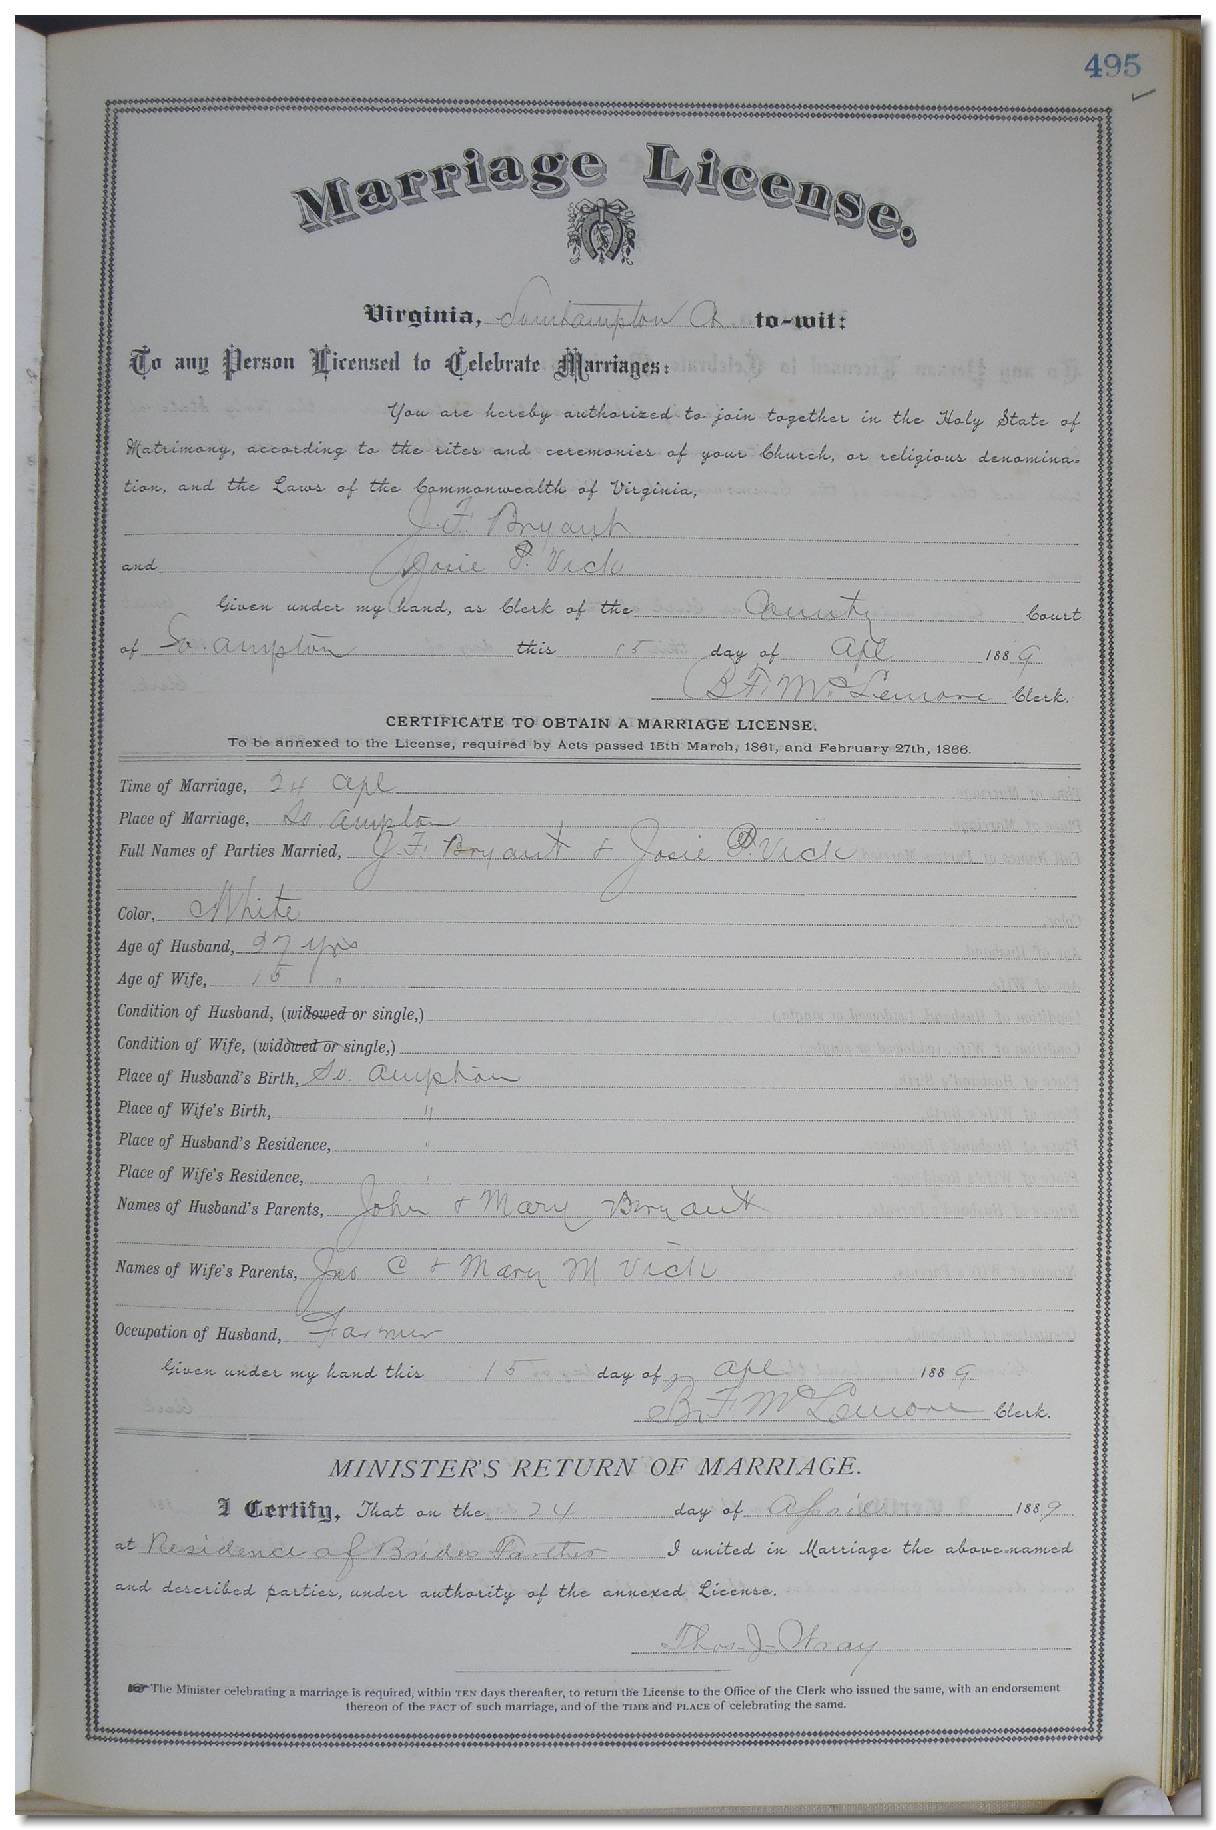 495
Marriage License.
Virginia, Southampton Co to-wit:
To any Person Licensed to Celebrate Marriages:
You are hereby authorized to join together in the Holy State of
Matrimony, according to the rites and ceremonies of your Church, or religious denomina-
tion, and the Laws of the Commonwealth of Virginia,
J. F. Bryant
and Josie P. Vick
Given under my hand, as Clerk of the County Court
of So. ampton this 15 day of Apl 1889
B. F. McLemore Clerk.
CERTIFICATE TO OBTAIN A MARRIAGE LICENSE.
To be annexed to the License, required by Acts passed 15th March, 1861, and February 27th, 1866.
Time of Marriage, 24 Apl
Place of Marriage, So. ampton
Full Names of Parties Married, J. F. Bryant & Josie P. Vick
Color, White
Age of Husband, 27 yrs
Age of Wife, 15 "
Condition of Husband, (widowed or single,)
Condition of Wife, (widowed or single,)
Place of Husband's Birth, So. ampton
Place of Wife's Birth, "
Place of Husband's Residence, "
Place of Wife's Residence, "
Names of Husband's Parents, John & Mary Bryant
Names of Wife's Parents, Jno C & Mary M Vick
Occupation of Husband, Farmer
Given under my hand this 15 day of Apl 1889
B. F. McLemore Clerk.
MINISTER'S RETURN OF MARRIAGE.
I Certify, That on the 24 day of April 1889
at Residence of Brides Father I united in Marriage the above-named
and described parties, under authority of the annexed License.
Thos. J. Wray
The Minister celebrating a marriage is required, within TEN days thereafter, to return the License to the Office of the Clerk who issued the same, with an endorsement
thereon of the FACT of such marriage, and of the TIME and PLACE of celebrating the same.